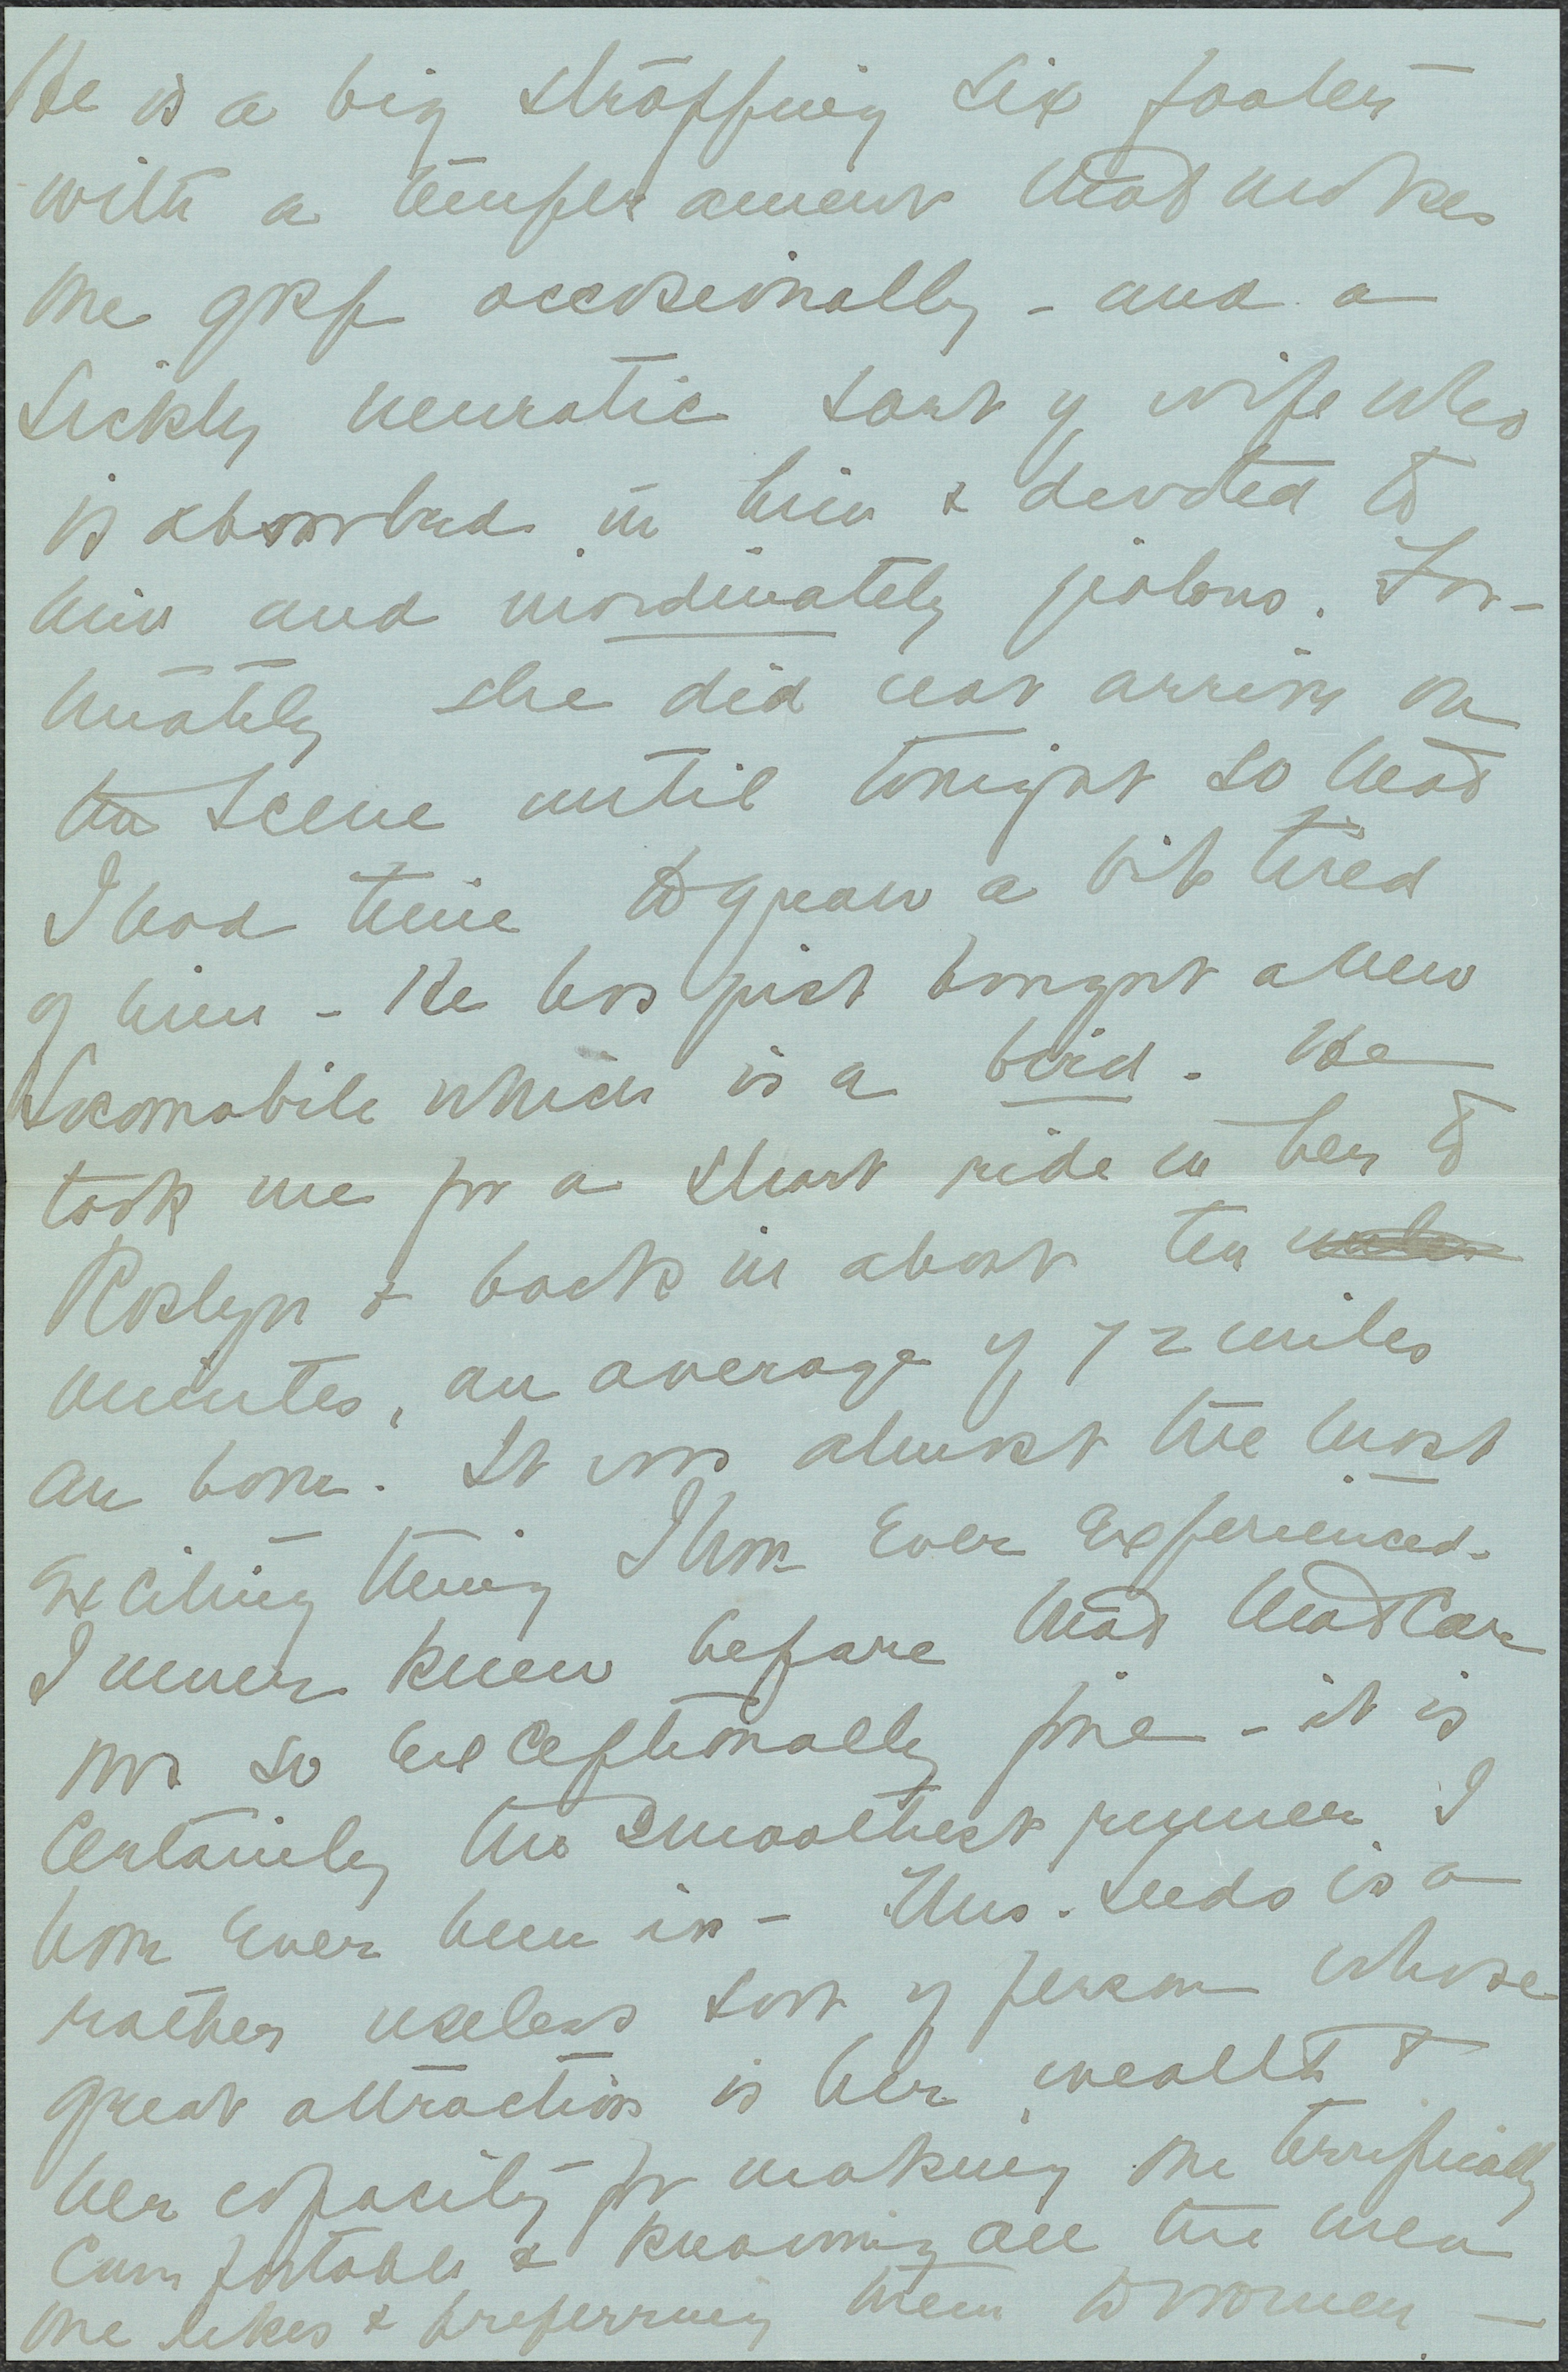 He is a big strapping six footer
with a temperament that makes
one gasp occasionally - and a
sickly neurotic sort of wife who
is absorbed in him & devoted to
him and inordinately jealous. For-
tunately she did not arrive on
the scene until tonight so that
I had time to grow a bit tired
of him - He has just bought a new
Locomobile which is a bird. He
took me for a short ride in her to
Roslyn & back in about ten miles
minutes, an average of 72 miles
an hour. It was almost the most
exciting thing I have ever experienced.
I never knew before that that car
was so exceptionally fine - it is
certainly the smoothest runner I
have ever been in - Mrs. Leeds is a
rather useless sort of person whose
great attraction is her wealth &
her capacity for making one terrifically
comfortable & knowing all the men
one likes & preferring them to women -